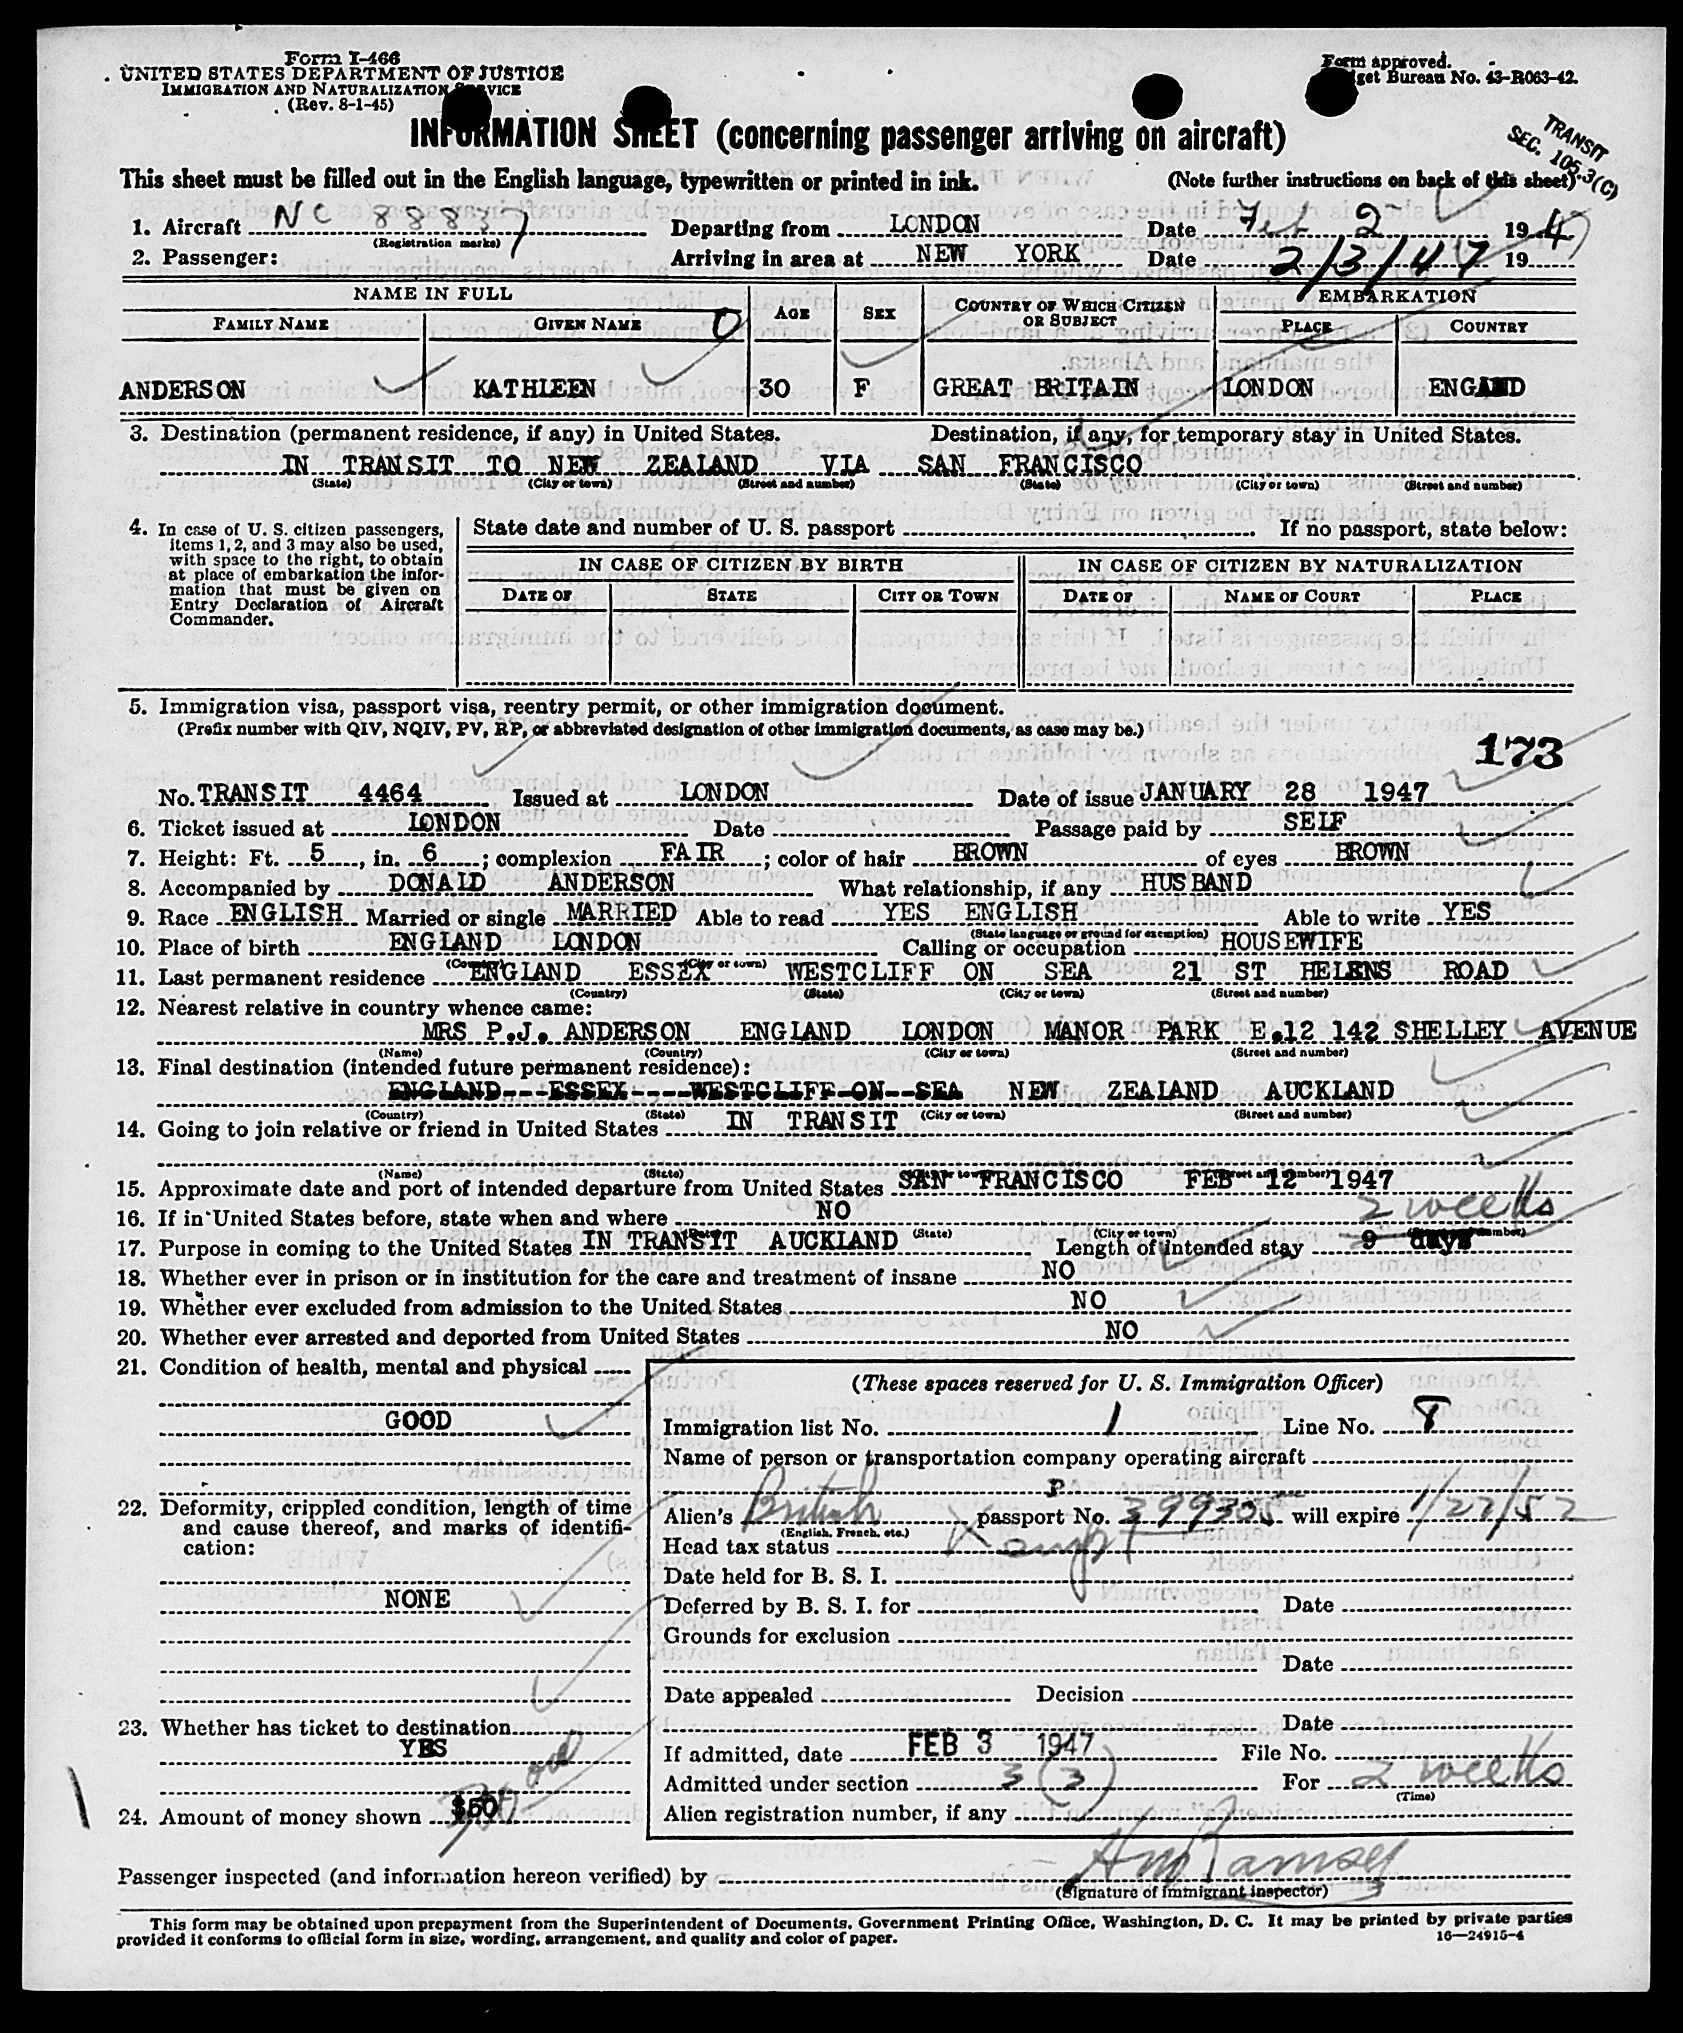 Form I-466
UNITED STATES DEPARTMENT OF JUSTICE
IMMIGRATION AND NATURALIZATION SERVICE
(Rev. 8-1-45)
Form approved.
Budget Bureau No. 43-R063-42.
TRANSIT
SEC. 105.3(C)
INFORMATION SHEET (concerning passenger arriving on aircraft)
This sheet must be filled out in the English language, typewritten or printed in ink. (Note further instructions on back of this sheet)
1. Aircraft NC 88837 Departing from LONDON Date Feb 2 1947
(Registration marks)
2. Passenger: Arriving in area at NEW YORK Date 2/3/47 19
NAME IN FULL AGE SEX COUNTRY OF WHICH CITIZEN OR SUBJECT EMBARKATION
FAMILY NAME GIVEN NAME O PLACE COUNTRY
ANDERSON KATHLEEN 30 F GREAT BRITAIN LONDON ENGLAND
3. Destination (permanent residence, if any) in United States. Destination, if any, for temporary stay in United States.
IN TRANSIT TO NEW ZEALAND VIA SAN FRANCISCO
(State) (City or town) (Street and number) (State) (City or town) (Street and number)
4. In case of U. S. citizen passengers, items 1, 2, and 3 may also be used, with space to the right, to obtain at place of embarkation the information that must be given on Entry Declaration of Aircraft Commander.
State date and number of U. S. passport If no passport, state below:
IN CASE OF CITIZEN BY BIRTH IN CASE OF CITIZEN BY NATURALIZATION
DATE OF STATE CITY OR TOWN DATE OF NAME OF COURT PLACE
5. Immigration visa, passport visa, reentry permit, or other immigration document.
(Prefix number with QIV, NQIV, PV, RP, or abbreviated designation of other immigration documents, as case may be.)
173
No. TRANSIT 4464 Issued at LONDON Date of issue JANUARY 28 1947
6. Ticket issued at LONDON Date Passage paid by SELF
7. Height: Ft. 5, in. 6; complexion FAIR; color of hair BROWN of eyes BROWN
8. Accompanied by DONALD ANDERSON What relationship, if any HUSBAND
9. Race ENGLISH Married or single MARRIED Able to read YES ENGLISH Able to write YES
(State language or ground for exemption)
10. Place of birth ENGLAND LONDON Calling or occupation HOUSEWIFE
(Country) (City or town)
11. Last permanent residence ENGLAND ESSEX WESTCLIFF ON SEA 21 ST HELENS ROAD
(Country) (State) (City or town) (Street and number)
12. Nearest relative in country whence came:
MRS P.J. ANDERSON ENGLAND LONDON MANOR PARK E.12 142 SHELLEY AVENUE
(Name) (Country) (City or town) (Street and number)
13. Final destination (intended future permanent residence):
ENGLAND---ESSEX----WESTCLIFF-ON--SEA NEW ZEALAND AUCKLAND
(Country) (State) (City or town) (Street and number)
14. Going to join relative or friend in United States IN TRANSIT
(Name) (State) (City or town) (Street and number)
15. Approximate date and port of intended departure from United States SAN FRANCISCO FEB 12 1947
16. If in United States before, state when and where NO
(Date) (State) (City or town) (Street and number)
2 weeks
17. Purpose in coming to the United States IN TRANSIT AUCKLAND Length of intended stay 9 days
18. Whether ever in prison or in institution for the care and treatment of insane NO
19. Whether ever excluded from admission to the United States NO
20. Whether ever arrested and deported from United States NO
21. Condition of health, mental and physical
GOOD
22. Deformity, crippled condition, length of time and cause thereof, and marks of identification:
NONE
23. Whether has ticket to destination
YES
24. Amount of money shown $50
(These spaces reserved for U. S. Immigration Officer)
Immigration list No. 1 Line No. 8
Name of person or transportation company operating aircraft
P
Alien's British passport No. 399305 will expire 1/27/52
(English, French, etc.)
Head tax status
Date held for B. S. I.
Deferred by B. S. I. for Date
Grounds for exclusion
Date
Date appealed Decision
Date
If admitted, date FEB 3 1947 File No.
Admitted under section 3 (3) For 2 weeks
(Time)
Alien registration number, if any
Passenger inspected (and information hereon verified) by HM Ramsey
(Signature of immigrant inspector)
This form may be obtained upon prepayment from the Superintendent of Documents, Government Printing Office, Washington, D. C. It may be printed by private parties
provided it conforms to official form in size, wording, arrangement, and quality and color of paper.
16—24915-4